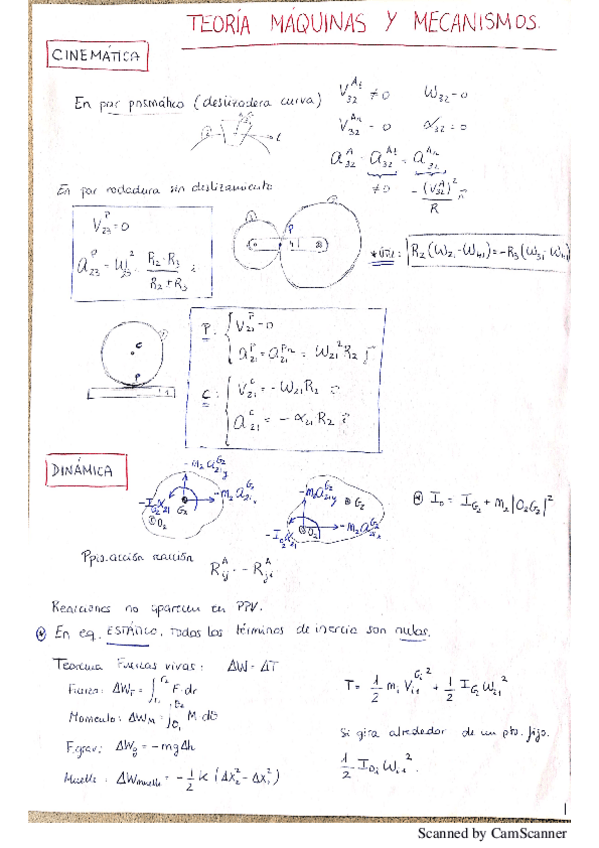 TEORÍA MÁQUINAS Y MECANISMOS.
CINEMÁTICA
En par prismático (deslizadera curva)
V₃₂^At ≠ 0 ω₃₂ = 0
V₃₂^An = 0 α₃₂ = 0
a₃₂^A = a₃₂^At + a₃₂^An
≠ 0 -(V₃₂^A)²/R n
En par rodadura sin deslizamiento
V₂₃^P = 0
a₂₃^P = ω₂₃² · R₂·R₃/(R₂+R₃) i
* útil: R₂(ω₂₁-ω₄₁) = -R₃(ω₃₁-ω₄₁)
P: V₂₁^P = 0
a₂₁^P = a₂₁^Pn = ω₂₁² R₂ j
C: V₂₁^C = -ω₂₁R₂ i
a₂₁^C = -α₂₁R₂ i
DINÁMICA
I₀ = I_G₂ + m₂|O₂G₂|²
Ppio. acción reacción R_ij^A = -R_ji^A
Reacciones no aparecen en PPV.
En eq. ESTÁTICO, todos los términos de inercia son nulos.
Teorema Fuerzas vivas: ΔW = ΔT
Fuerza: ΔW_F = ∫ F·dr
Momento: ΔW_M = ∫ M dθ
F.grav: ΔW_g = -mgΔh
Muelle: ΔW_muelle = -1/2 K (Δx₂² - Δx₁²)
T = 1/2 m_i V_i1^Gi² + 1/2 I_Gi ω_i1²
Si gira alrededor de un pto. fijo.
1/2 I_Oi ω_i1².
1
Scanned by CamScanner